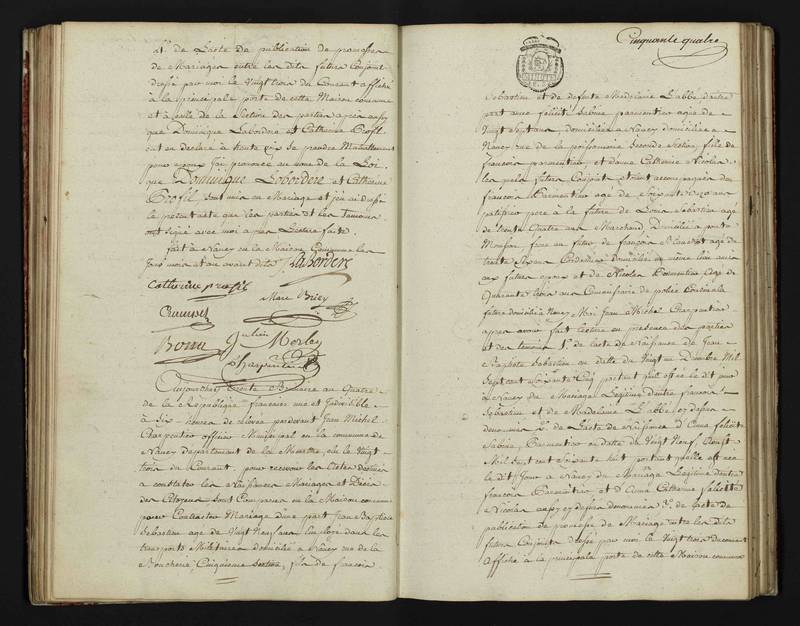 1º de Lacte de publication de promesses
de Mariages entre les dits futurs Conjoints
dressé par moi le Vingt trois du Courant affiché
à la principale porte de cette Maison commune
et à celle de la Section des parties après aussy
que Dominique Labordere et Catherine Profil
ont eu declaré à haute voix se prendre Mutuellement
pour epoux J'ai prononcé au nom de la Loi
que Dominique Labordere et Catherine
Profil sont unis en Mariage et j'en ai dressé
le present acte que les parties et les temoins
ont signé avec moi après Lecture faite.
fait à Nancy en la Maison Commune les
Jour mois et an avant dits Labordere
Catherine profil
Marc Briey
Julien
Morlay
Charpentier
Aujourdhuy trente Brumaire an Quatre
de la Republique francaise une et Indivisible
à Six heures de relevée pardevant Jean Michel
Charpentier officier Municipal en la commune de
Nancy departement de la Meurthe, elu le Vingt
trois du Courant, pour recevoir les Actes destinés
a constater les Naissances Mariages et Décès
des Citoyens, sont Comparus en la Maison commune
pour Contracter Mariage d'une part Jean Baptiste
Sebastien age de Vingt Neuf ans Employé dans les
transports Militaires domicilié à Nancy rue de la
Boucherie, Cinquieme Section, fils de francois
Cinquante quatre
Sebastien et de defunte Madelaine L'abbé d'autre
part anne felicité Sabine parmentier agée de
Vingt Sept ans, domiciliée a Nancy domiciliée a
Nancy rue de la poissonnerie Seconde Section, fille de
francois parmentier et danne Catherine Nicolas
les quels futurs Conjoints etoient accompagnés de
francois Parmentier agé de Soixante ans
patissier pere à la future de Louis Sebastien agé
de trente Quatre ans Marchand Domicilié a porte
frere au futur de francois agé de
trente ans Cordonnier domicilié au même lieu
aux futurs epoux et de Nicolas Parmentier age de
Quarante trois ans Commissaire de police
future domicilié a Nancy Moi Jean Michel Charpentier
apres avoir fait lecture en presence des parties
et des temoins 1º de Lacte de Naissance de Jean
Baptiste Sebastien en datte du Vingt un Decembre Mil
Sept cent soixante Cinq portant quil est né le dit jour
a Nancy du Mariage Legitime d'entre francois
Sebastien et de Madelaine L'abbé cy dessus
denommés 2º de Lacte de Naissance d'Anne felicité
Sabine Parmentier en datte du Vingt Neuf Aoust
Mil Sept cent Soixante huit portant quelle est née
le dit Jour à Nancy du Mariage Legitime dentre
francois Parmentier et d'anne Catherine felicité
Nicolas aussy cy dessus denommés 3º de lacte de
publication de promesses de Mariage entre les dits
futurs Conjoints dressé par moi le Vingt trois du courant
Affiché a la principale porte de cette Maison commune